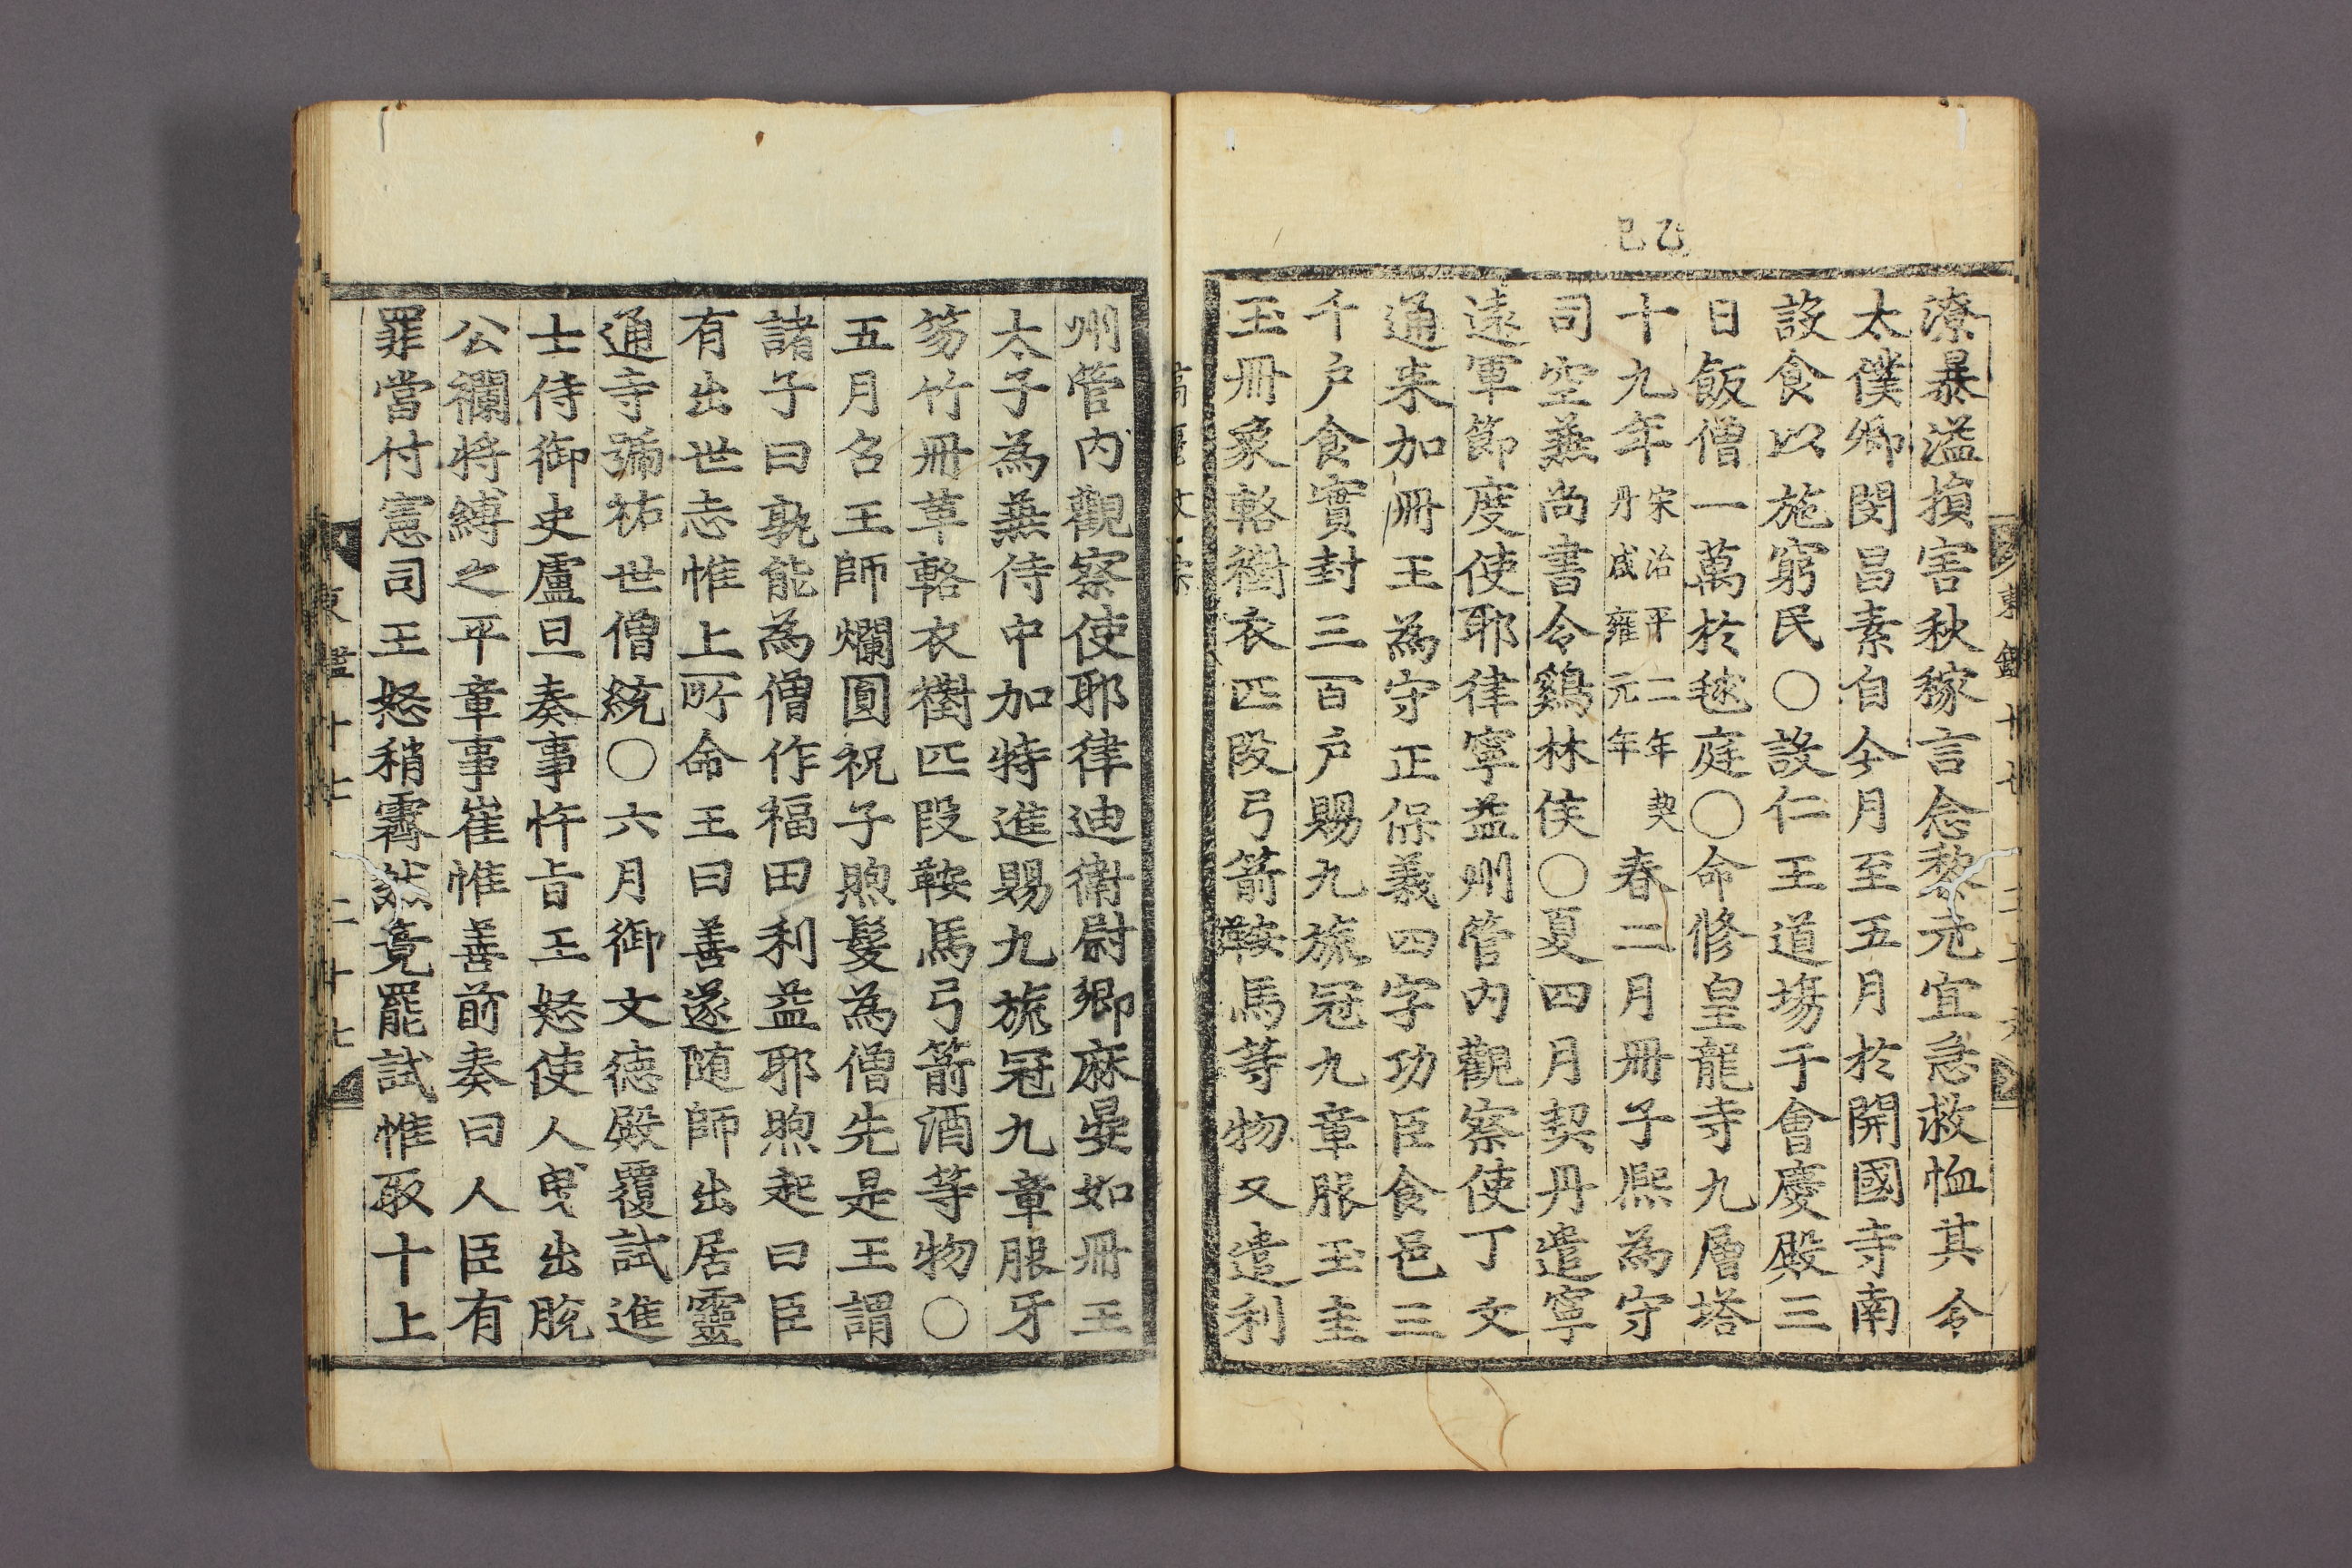 乙巳
潦暴溢損害秋稼言念黎元宜急救恤其令
太僕卿閔昌素自今月至五月於開國寺南
設食以施窮民○設仁王道場于會慶殿三
日飯僧一萬於毬庭○命修皇龍寺九層塔
十九年宋治平二年契丹咸雍元年春二月冊子熙為守
司空兼尚書令鷄林侯○夏四月契丹遣寧
遠軍節度使耶律寧益州管內觀察使丁文
通来加冊王為守正保義四字功臣食邑三
千户食實封三百户賜九旒冠九章服玉圭
玉冊象輅襨衣匹段弓箭鞍馬等物又遣利
州管內觀察使耶律迪衛尉卿麻晏如冊王
太子為兼侍中加特進賜九旒冠九章服牙
笏竹冊革輅衣襨匹段鞍馬弓箭酒等物○
五月召王師爛圓祝子煦髮為僧先是王謂
諸子曰孰能為僧作福田利益耶煦起曰臣
有出世志惟上所命王曰善遂随師出居靈
通寺號祐世僧統○六月御文德殿覆試進
士侍御史盧旦奏事忤旨王怒使人曳出脫
公襴將縛之平章事崔惟善前奏曰人臣有
罪當付憲司王怒稍霽然竟罷試惟取十上
東鑑十七 二十七